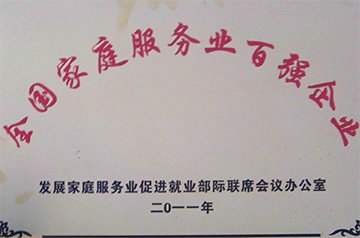 全国家庭服务业百强企业
发展家庭服务业促进就业部际联席会议办公室
二0一一年